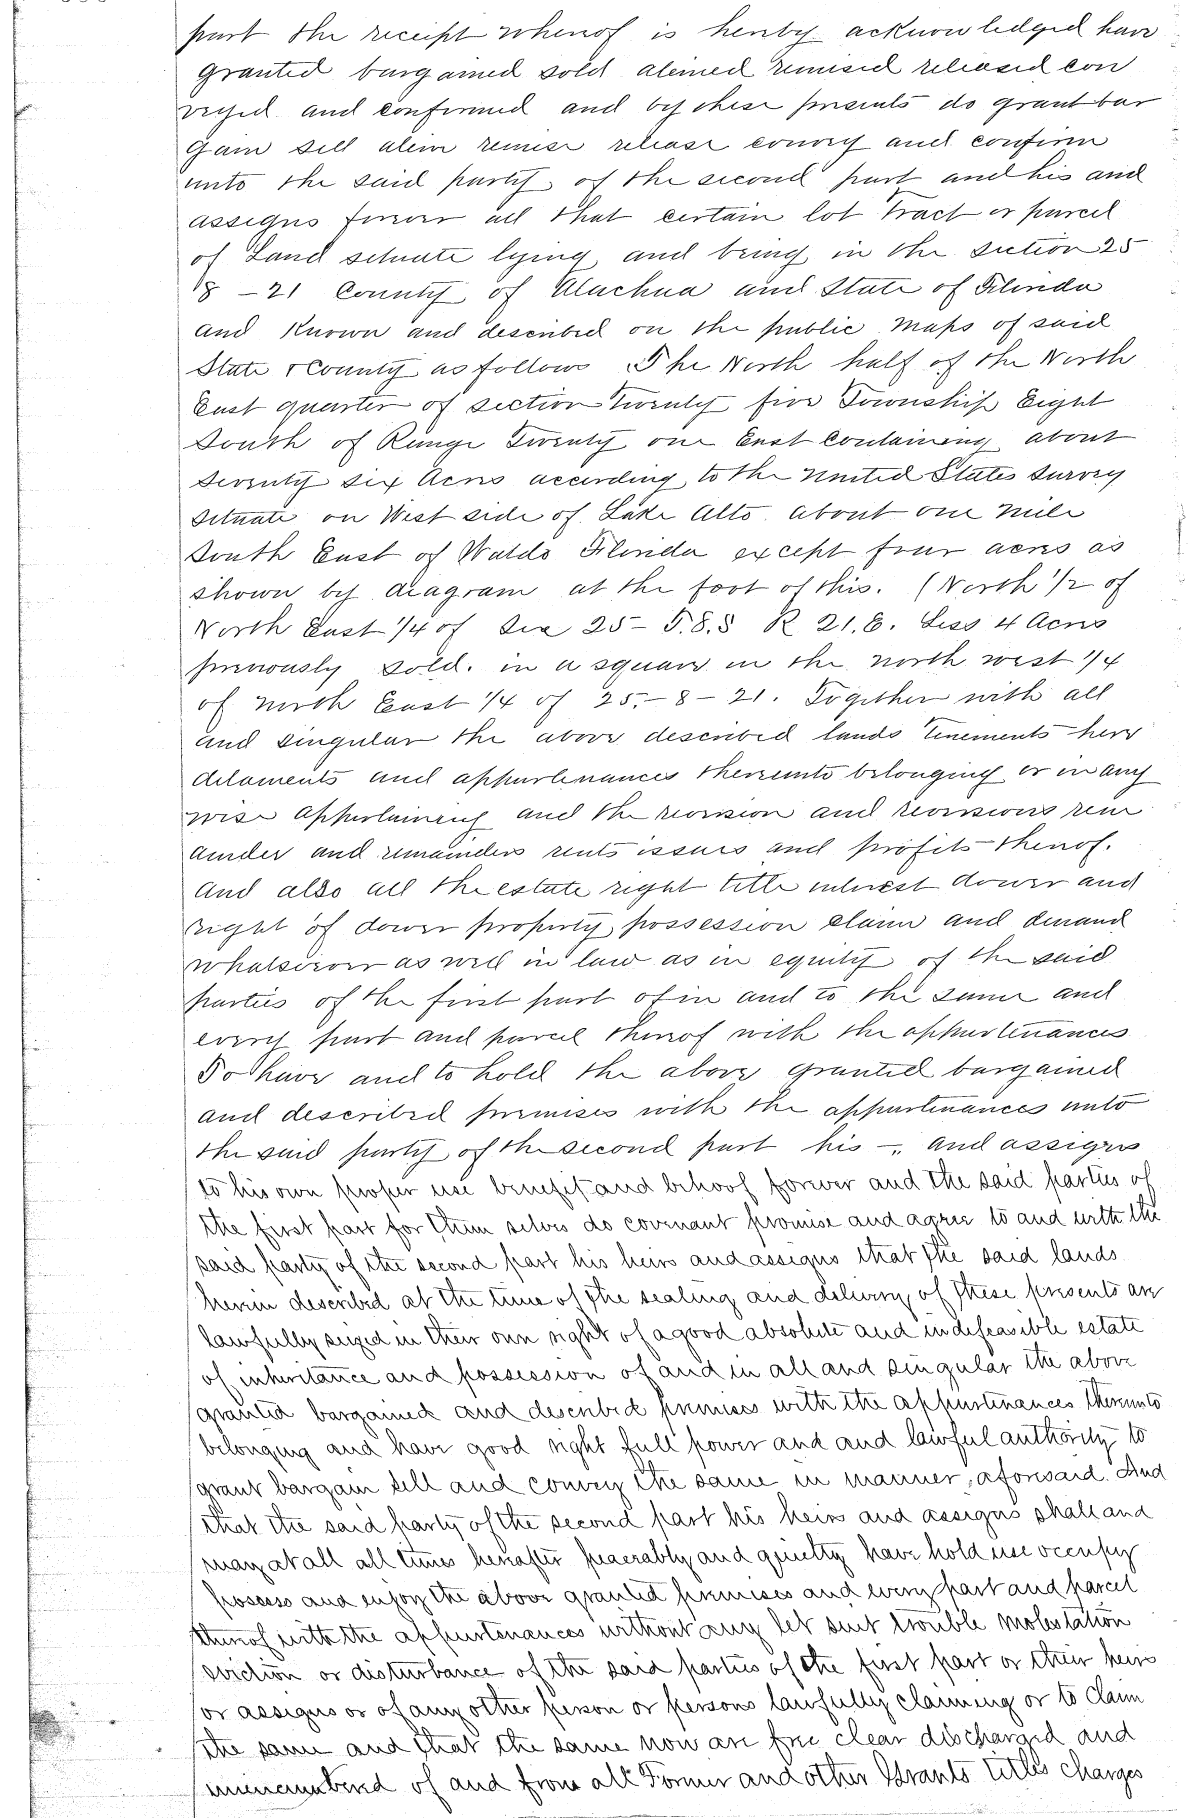 part the receipt whereof is hereby acknowledged have
granted bargained sold aleined remised released con
veyed and confirmed and by these presents do grant bar
gain sell alein remise release convey and confirm
unto the said party of the second part and his and
assigns forever all that certain lot tract or parcel
of Land situate lying and being in the section 25
8 - 21 County of Alachua and State of Florida
and Known and described on the public maps of said
State & County as follows The North half of the North
East quarter of section Twenty five Township Eight
South of Range Twenty one East Containing about
seventy six Acres according to the United States Survey
situate on West side of Lake Alto about one mile
South East of Waldo Florida except four acres as
shown by diagram at the foot of this. (North 1/2 of
North East 1/4 of Sec 25 - T.8.S R 21.E. Less 4 Acres
previously sold. in a square in the north west 1/4
of north East 1/4 of 25.-8-21. Together with all
and singular the above described lands tenements here
ditaments and appurtenances thereunto belonging or in any
wise appertaining and the reversion and reversions rem
ainder and remainders rents issues and profits thereof.
And also all the estate right title interest dower and
right of dower property possession claim and demand
whatsoever as well in law as in equity of the said
parties of the first part of in and to the same and
every part and parcel thereof with the appurtenances
To have and to hold the above granted bargained
and described premises with the appurtenances unto
the said party of the second part his - and assigns
to his own proper use benefit and behoof forever and the said parties of
the first part for them selves do covenant promise and agree to and with the
said party of the second part his heirs and assigns that the said lands
herein described at the time of the sealing and delivery of these presents are
lawfully seized in their own right of a good absolute and indefeasible estate
of inheritance and possession of and in all and singular the above
granted bargained and described premises with the appurtenances thereunto
belonging and have good right full power and and lawful authority to
grant bargain sell and convey the same in manner, aforesaid. And
that the said party of the second part his heirs and assigns shall and
may at all all times hereafter peaceably and quietly have hold use occupy
possess and enjoy the above granted premises and every part and parcel
thereof with the appurtenances without any let suit trouble molestation
eviction or disturbance of the said parties of the first part or their heirs
or assigns or of any other person or persons lawfully claiming or to claim
the same and that the same now are free clear discharged and
unencumbered of and from all Former and other Grants titles charges